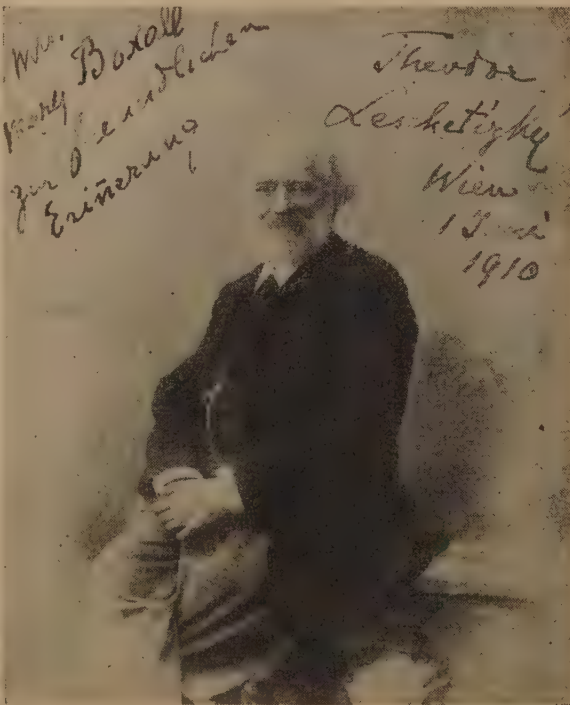 Mrs.
Mary Boxall
zur freundlichen
Erinerung
Theodor
Leschetizky
Wien
1 Juni
1910